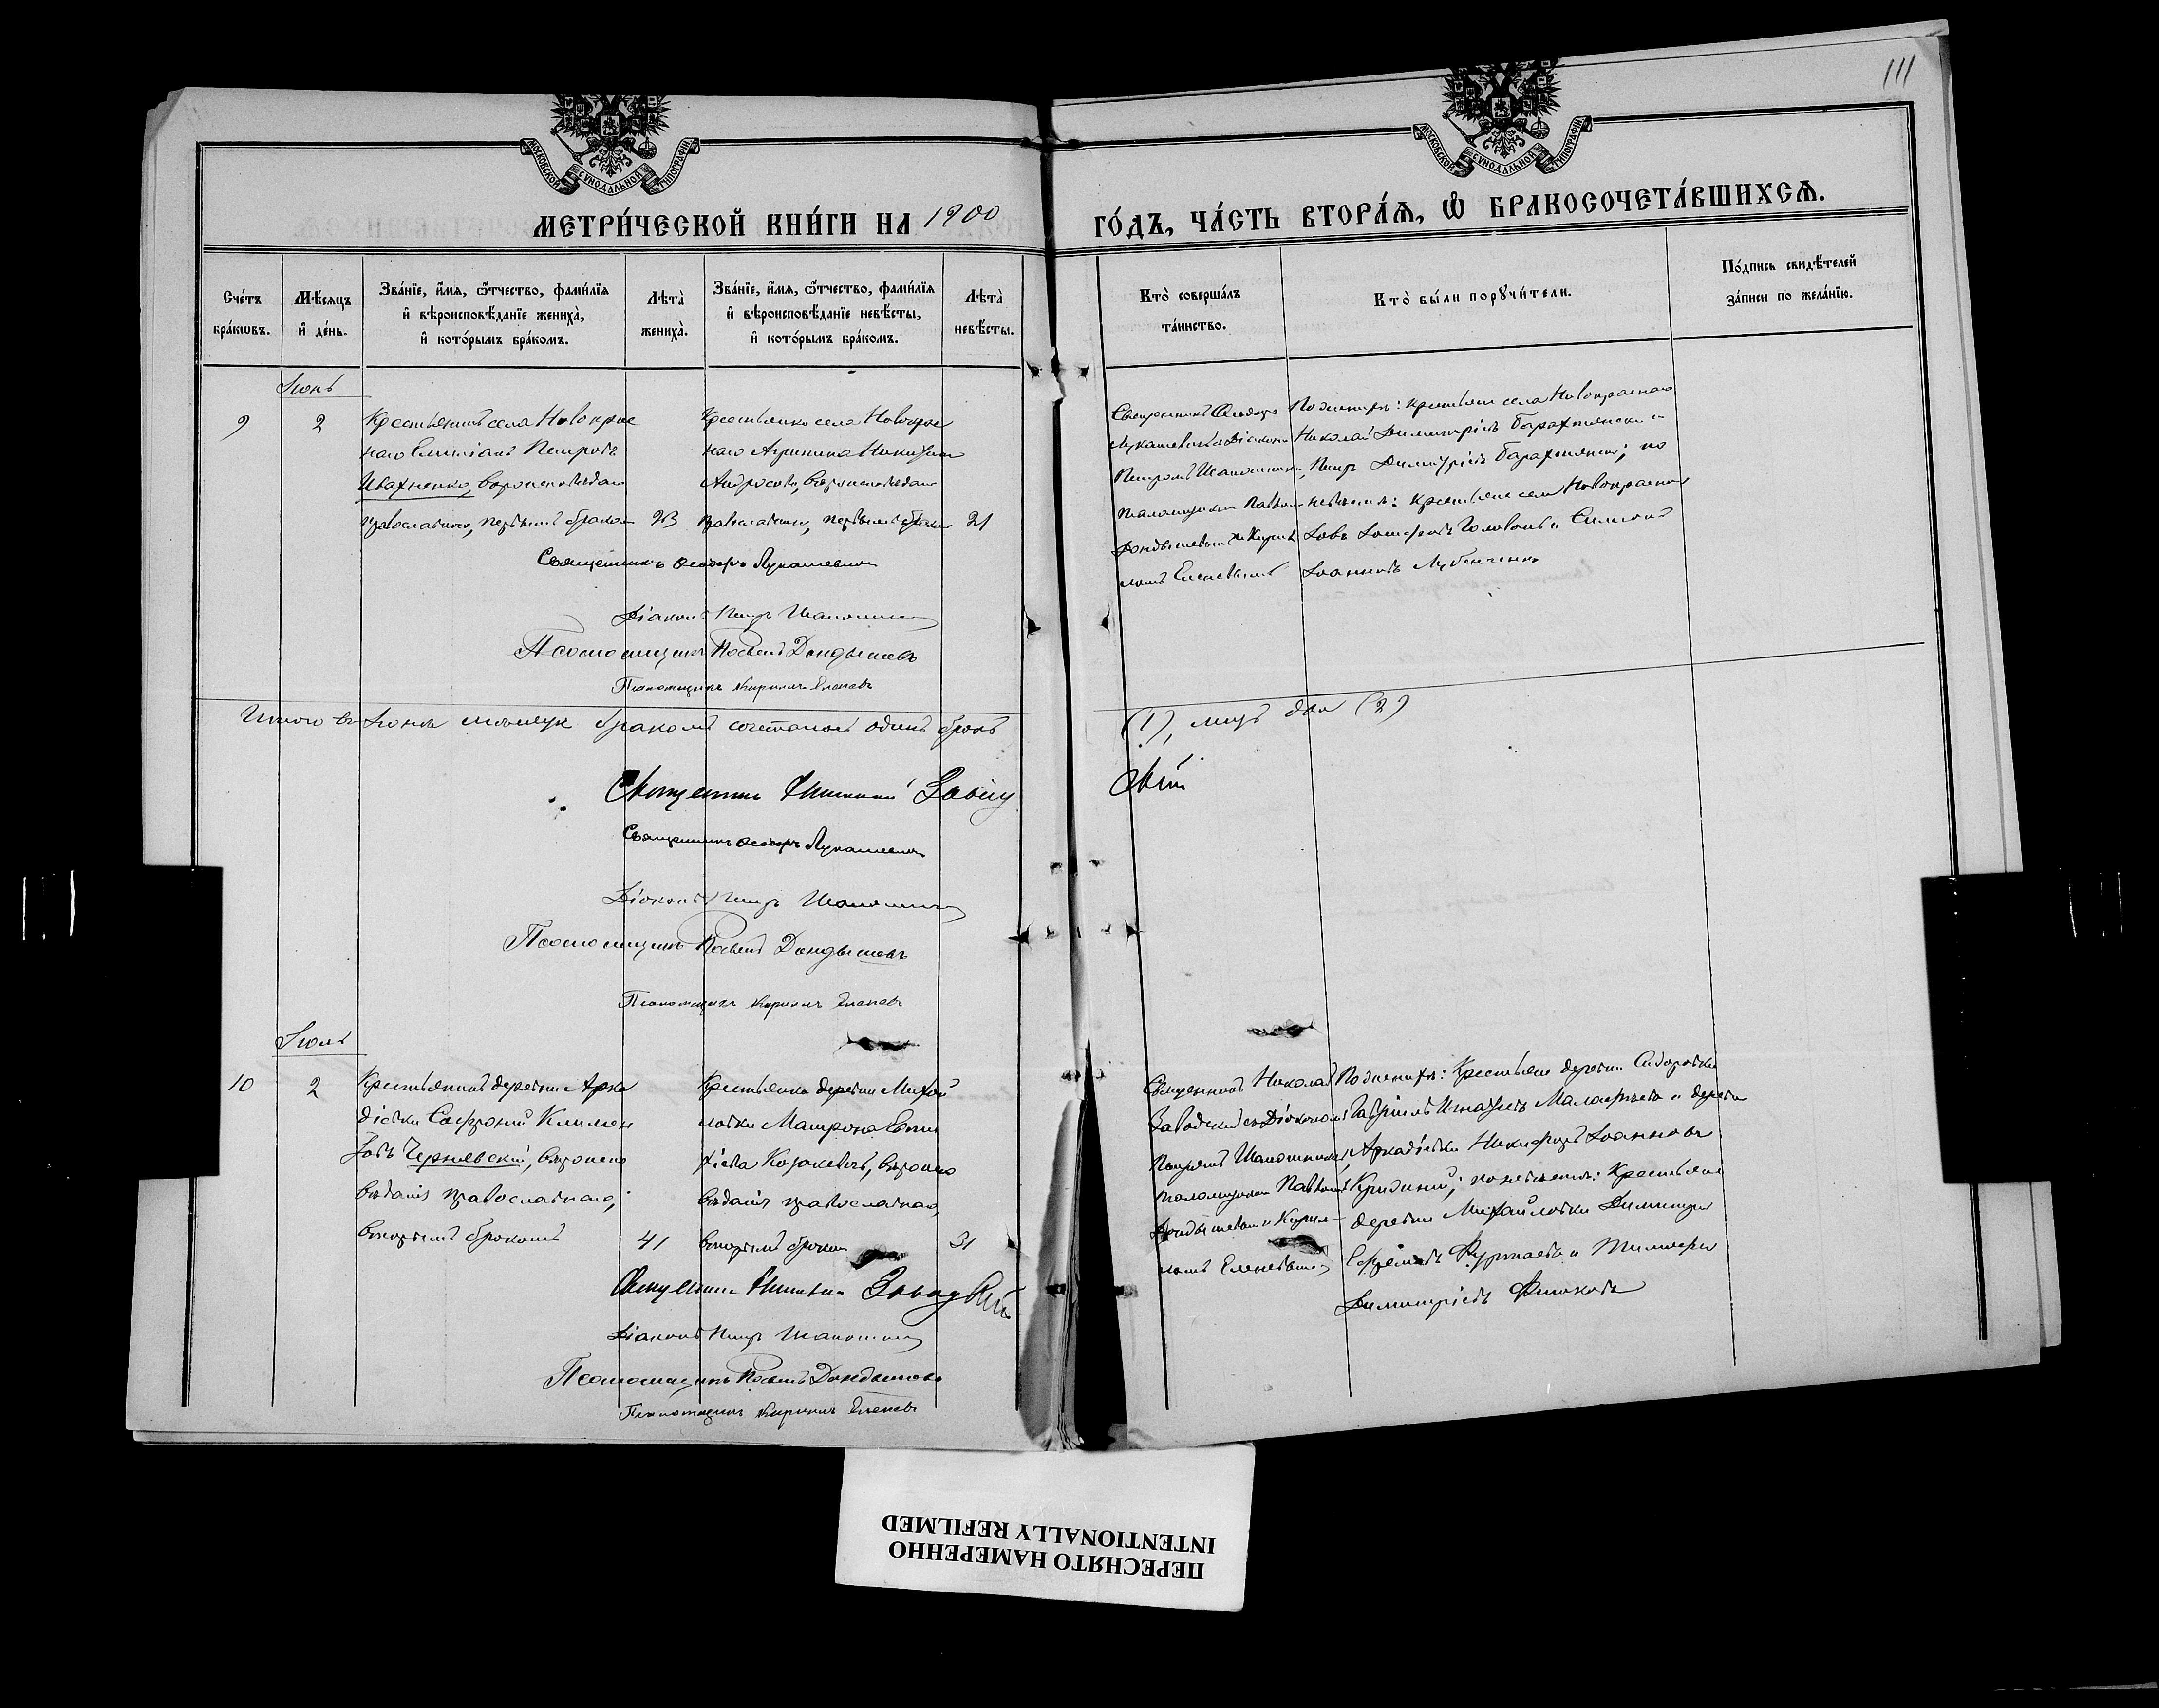 111
МОСКОВСКОЙ СУНОДАЛЬНОЙ ТИПОГРАФІИ
МОСКОВСКОЙ СУНОДАЛЬНОЙ ТИПОГРАФІИ
МЕТРИ́ЧЕСКОЙ КНИ́ГИ НА 1900
ГО́ДЪ, ЧА́СТЬ ВТОРА́Ѧ, Ѽ БРАКОСОЧЕТА́ВШИХСѦ.
Сче́тъ
бра́кѡвъ.
Мѣ́сѧцъ
и҆ де́нь.
Зва́нїе, и҆́мѧ, ѻ҆́тчество, фами́лїѧ
и҆ вѣроисповѣ́данїе жениха̀,
и҆ кото́рымъ бра́комъ.
Лѣта̀
жениха̀.
Зва́нїе, и҆́мѧ, ѻ҆́тчество, фами́лїѧ
и҆ вѣроисповѣ́данїе невѣ́сты,
и҆ кото́рымъ бра́комъ.
Лѣта̀
невѣ́сты.
Кто̀ соверша́лъ
та́инство.
Кто̀ бы́ли порꙋчи́тели.
По́дпись свидѣ́телей
за́писи по жела́нїю.
Іюнь
9
2
Крестьянинъ села Новокрас
наго Емиліанъ Петровъ
Ивахненко, вѣроисповѣдан
православнаго, первымъ бракомъ
23
Крестьянка села Новокрас
наго Агрипина Никитина
православнаго, первымъ бракомъ
21
Священникъ Ѳеодоръ
Лукашевичъ съ Діакономъ
Петромъ Шапошник
псаломщиками Павломъ
Дондышевымъ и Кирил
ломъ Еленевымъ
По женихѣ: крестьяне села Новокраснаго
Николай Димитріевъ Барахтянскій и
Петръ Димитріевъ Барахтянскій; по
невѣстѣ: крестьяне села Новокраснаго
Іовъ Іосифовъ Головань и Симеонъ
Іоанновъ Лубенченко
Священникъ Ѳеодоръ Лукашевичъ
Діаконъ Петръ Шапошник
Псаломщикъ Павелъ Дондышевъ
Псаломщикъ Кириллъ Еленевъ
Итого въ Іюнѣ мѣсяцѣ бракомъ сочетался одинъ бракъ
(1), лицъ два (2)
Священникъ Николай Завад
скій
Священникъ Ѳеодоръ Лукашевичъ
Діаконъ Петръ Шапошник
Псаломщикъ Павелъ Дондышевъ
Псаломщикъ Кириллъ Еленевъ
Іюль
10
2
Крестьянинъ деревни Арка
діевки Софроній Климен
товъ Черніевскій, вѣроиспо
вѣданія православнаго,
вторымъ бракомъ
41
Крестьянка деревни Михай
ловки Матрона Евти
хіева Козакевичъ, вѣроиспо
вѣданія православнаго,
вторымъ бракомъ
31
Священникъ Николай
Завадскій съ Діакономъ
Петромъ Шапошник
псаломщиками Павломъ
Дондышевымъ и Кирил
ломъ Еленевымъ
По женихѣ: Крестьяне деревни Сидоровки
Гавріилъ Игнатьевъ Малафѣевъ и деревни
Аркадіевки Никифоръ Іоанновъ
по невѣстѣ: Крестьяне
деревни Михайловки Димитрій
Ефремовъ и Тимофей
Димитріевъ
Священникъ Николай Завадскій
Діаконъ Петръ Шапошник
Псаломщикъ Павелъ Дондышевъ
Псаломщикъ Кириллъ Еленевъ
ПЕРЕСНЯТО НАМЕРЕННО
INTENTIONALLY REFILMED